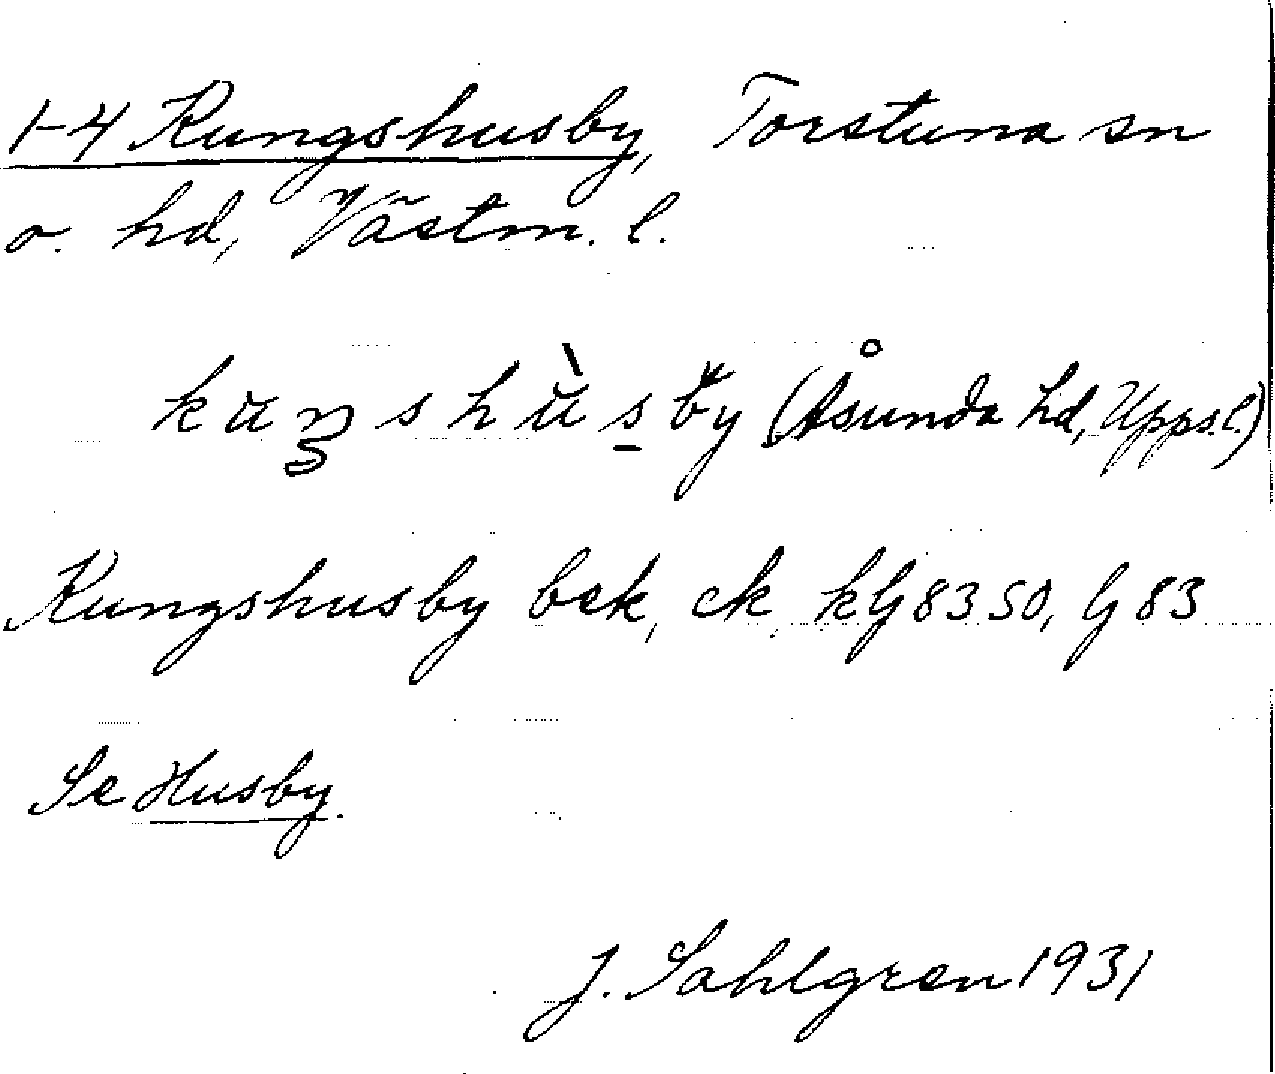 1-4 Kungshusby, Torstuna sn
o. hd, Västm. l.
kuŋshùs̠by (Åsunda hd, Upps.l.)
Kungshusby bek, ek, kG 8350, G 83
Se Husby.
J. Sahlgren 1931